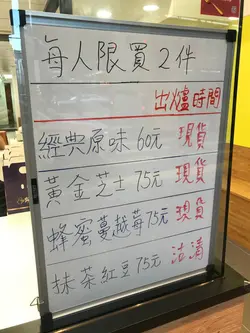 每人限買2件
出爐時間
經典原味 60元 現貨
黃金芝士 75元 現貨
蜂蜜蔓越莓75元 現貨
抹茶紅豆75元 沽清